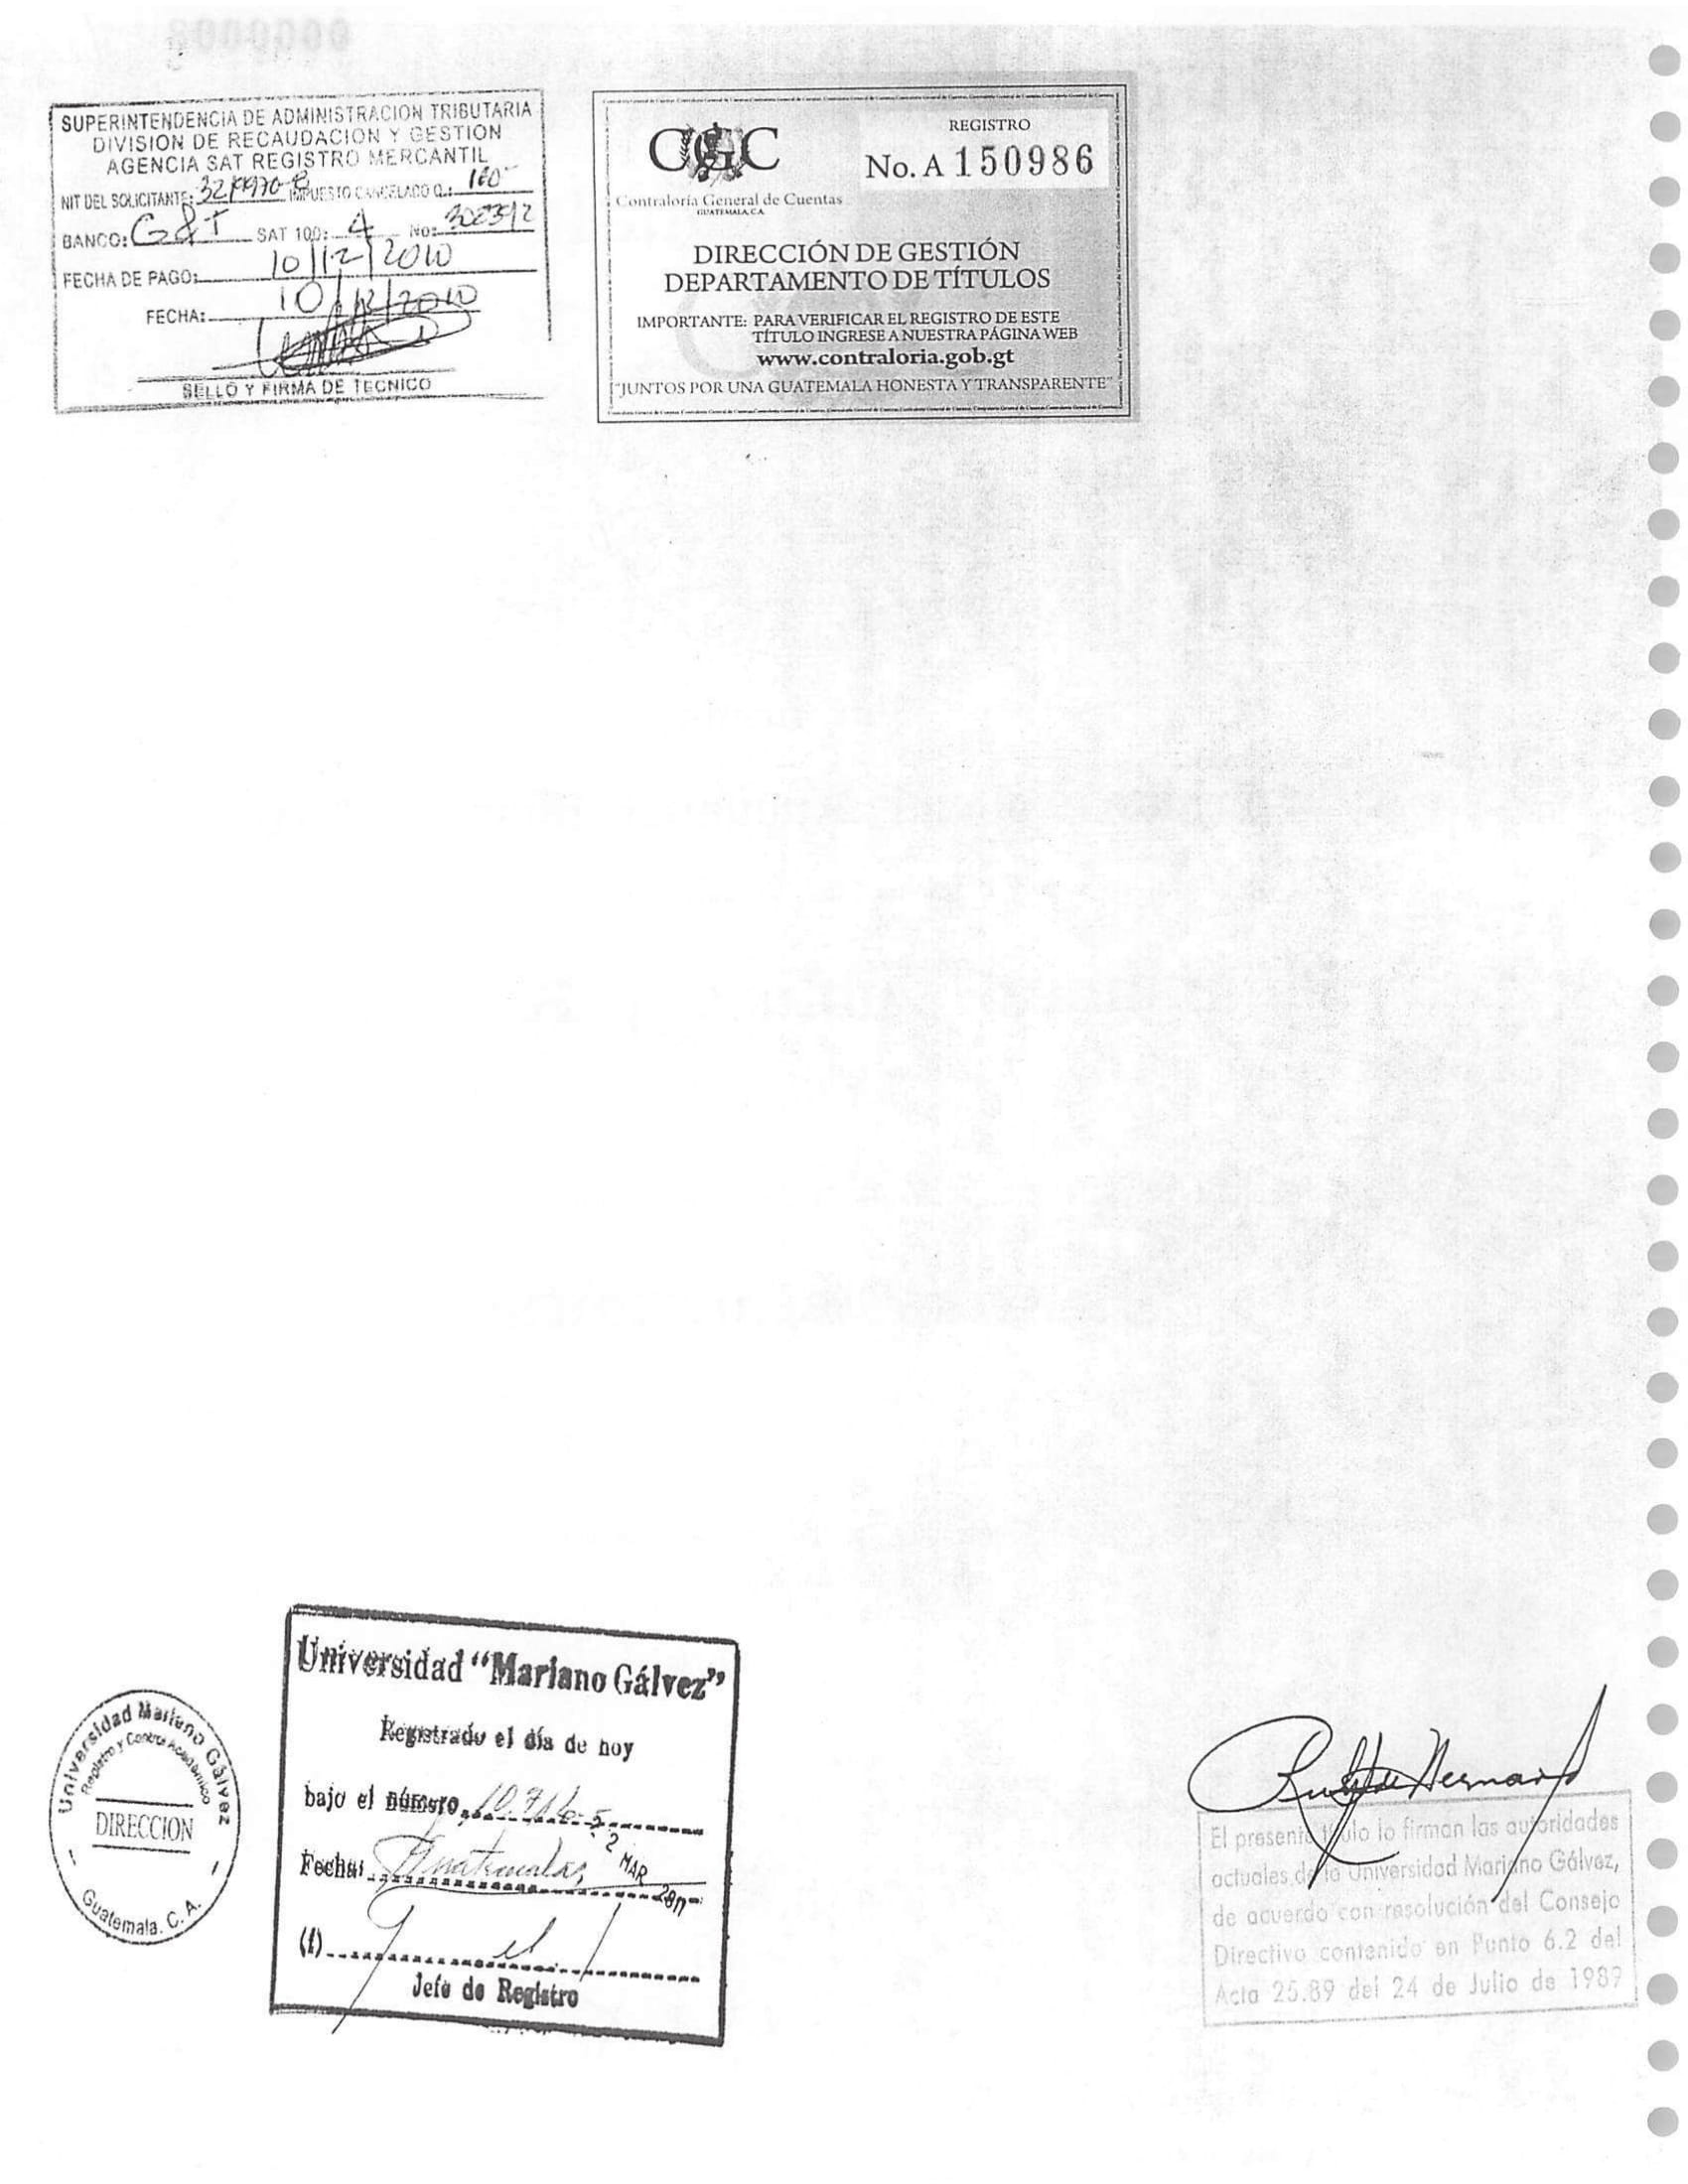 SUPERINTENDENCIA DE ADMINISTRACION TRIBUTARIA
DIVISION DE RECAUDACION Y GESTION
AGENCIA SAT REGISTRO MERCANTIL
NIT DEL SOLICITANTE: IMPUESTO CANCELADO Q.: 100-
BANCO: G&T SAT 100: 4 No: 
FECHA DE PAGO: 10/12/2010
FECHA: 10/12/2010
SELLO Y FIRMA DE TECNICO
CGC
Contraloría General de Cuentas
GUATEMALA, C.A.
REGISTRO
No. A 150986
DIRECCIÓN DE GESTIÓN
DEPARTAMENTO DE TÍTULOS
IMPORTANTE: PARA VERIFICAR EL REGISTRO DE ESTE
TÍTULO INGRESE A NUESTRA PÁGINA WEB
www.contraloria.gob.gt
"JUNTOS POR UNA GUATEMALA HONESTA Y TRANSPARENTE"
Universidad Mariano Gálvez
Registro y Control Académico
DIRECCION
Guatemala. C. A.
Universidad "Mariano Gálvez"
Registrado el día de hoy
bajo el número
Fecha: Guatemala, 2 MAR
(f)
Jefe de Registro
El presente título lo firman las autoridades
actuales de la Universidad Mariano Gálvez,
de acuerdo con resolución del Consejo
Directivo contenido en Punto 6.2 del
Acta 25.89 del 24 de Julio de 1989